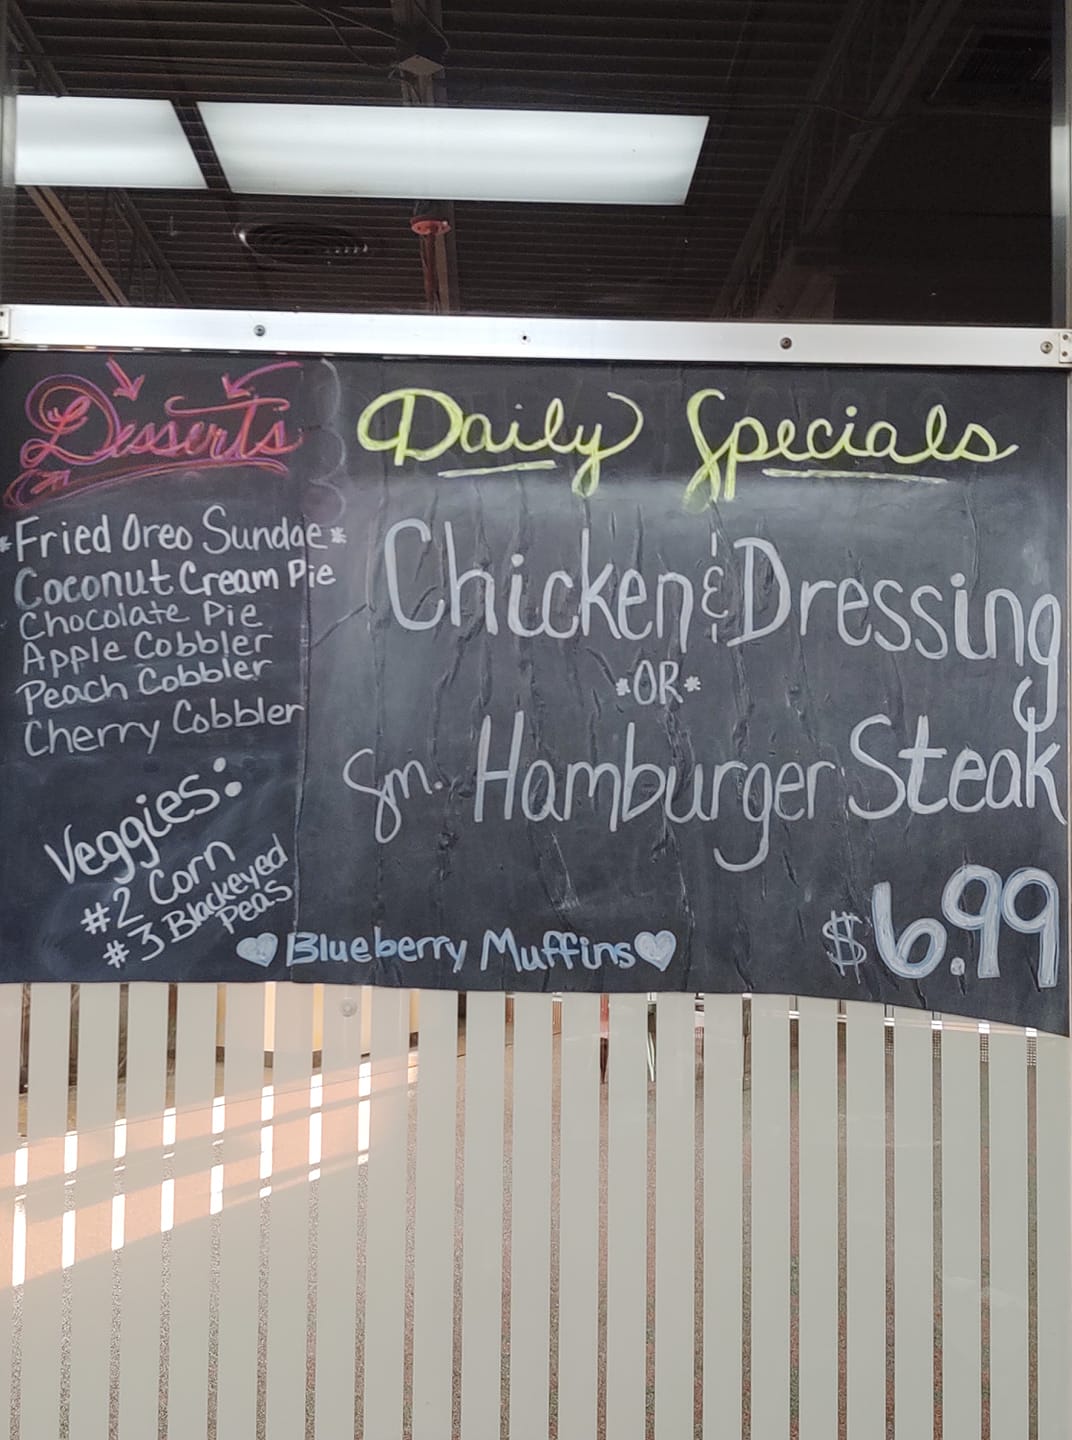 Desserts
*Fried Oreo Sundae*
Coconut Cream Pie
Chocolate Pie
Apple Cobbler
Peach Cobbler
Cherry Cobbler
Veggies:
#2 Corn
#3 Blackeyed
Peas
Daily Specials
Chicken & Dressing
*OR*
Sm. Hamburger Steak
$6.99
Blueberry Muffins